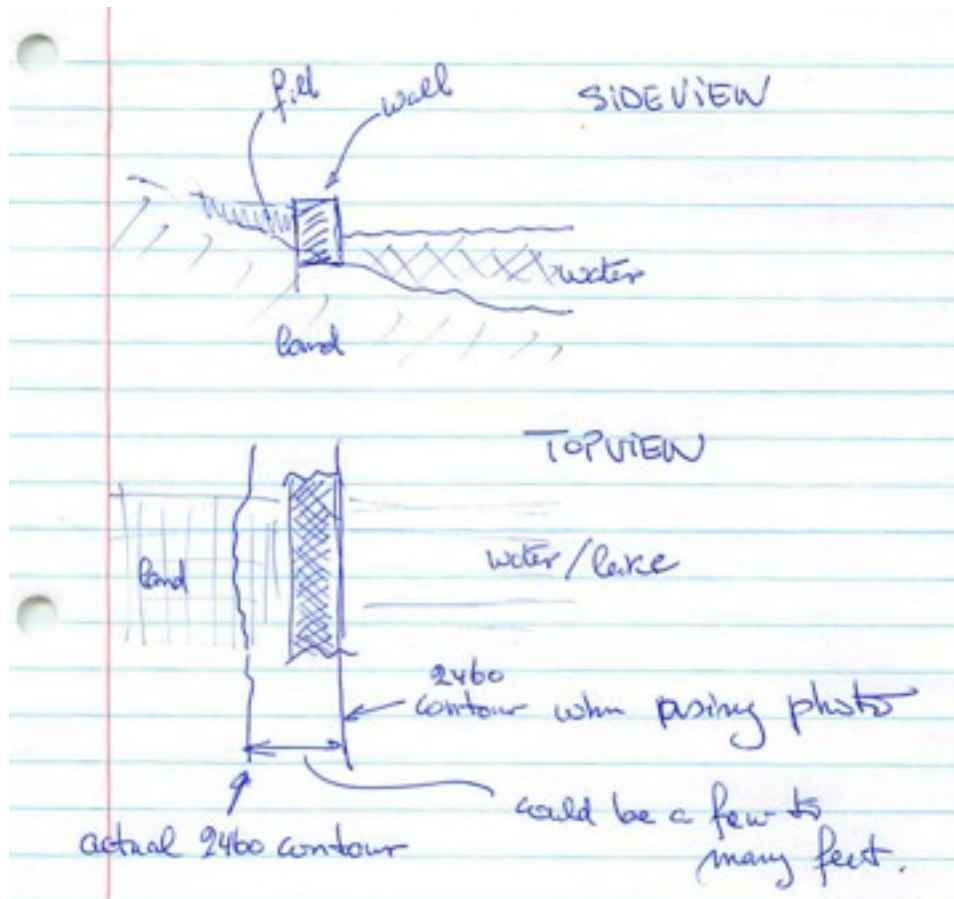 fill
wall
SIDEVIEW
water
land
TOPVIEW
land
water/lake
2460
contour when using photo
could be a few to
many feet.
actual 2460 contour